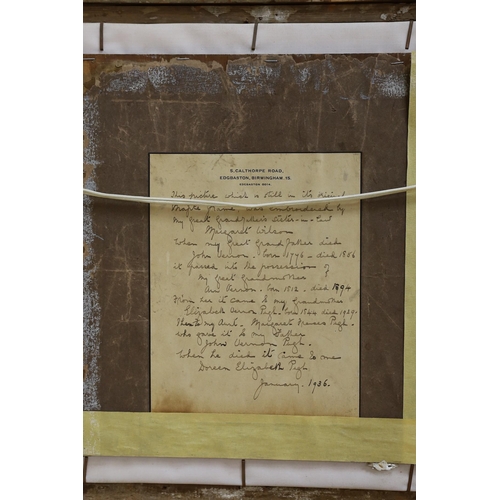 5, CALTHORPE ROAD,
EDGBASTON, BIRMINGHAM, 15.
EDGBASTON
This picture which is still in its original
Maple frame was embroidered by
My Great Grandfather's sister
Margaret Wilson
When my Great Grandfather died
John Vernon. born 1776 - died 1856
it passed into the possession of
My Great Grandmother
Ann Vernon. born 1812. died 1894
From her it came to my Grandmother
Elizabeth Vernon Pugh. born 1844 died 1929.
Then to my Aunt - Margaret Frances Pugh.
who gave it to my Father
John Vernon Pugh.
When he died it came to me
Doreen Elizabeth Pugh.
January. 1936.